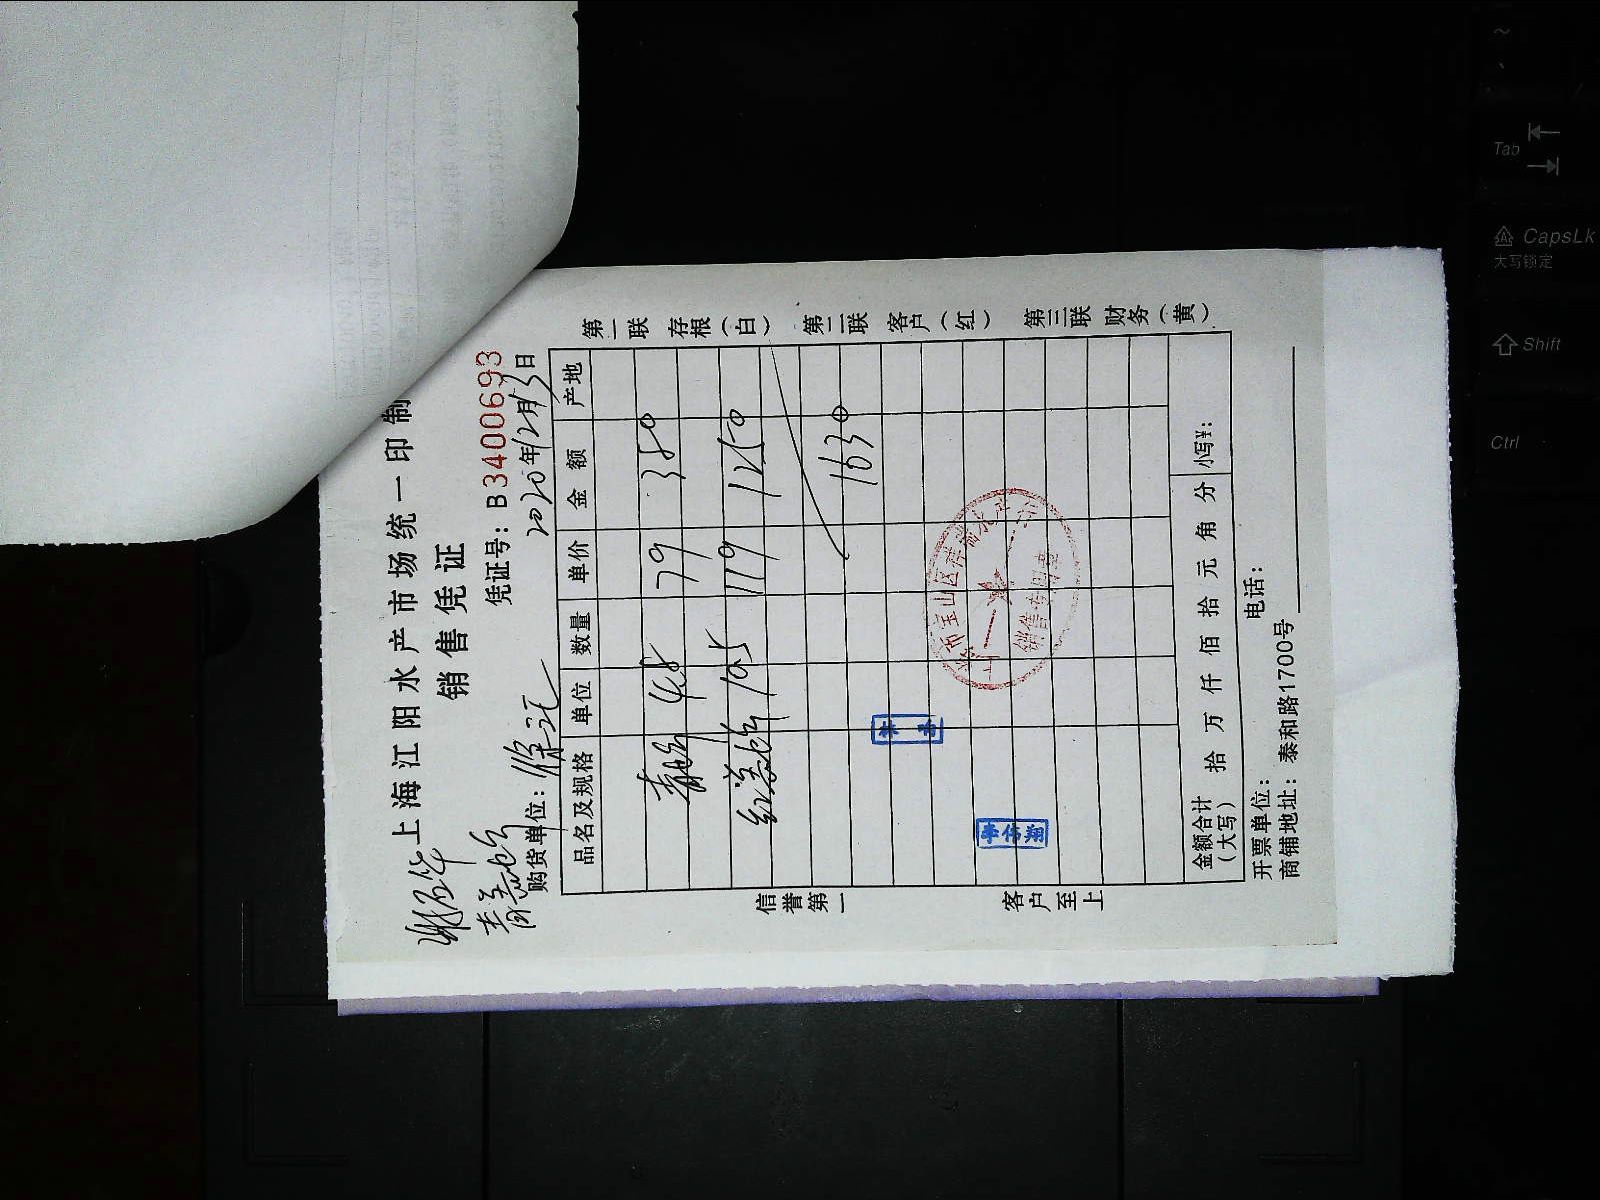 上海江阳水产市场统一印制
销售凭证
凭证号：B3400693
购货单位：
2020年12月13日
品名及规格 单位 数量 单价 金额 产地
4.8 79 380
10.5 119 1250
1630
宝山区
销售专用章
李信翔
金额合计（大写） 拾 万 仟 佰 拾 元 角 分 小写¥：
开票单位： 电话：
商铺地址：泰和路1700号
信誉第一
客户至上
第一联 存根（白）
第二联 客户（红）
第三联 财务（黄）
~
Tab
CapsLk
大写锁定
Shift
Ctrl